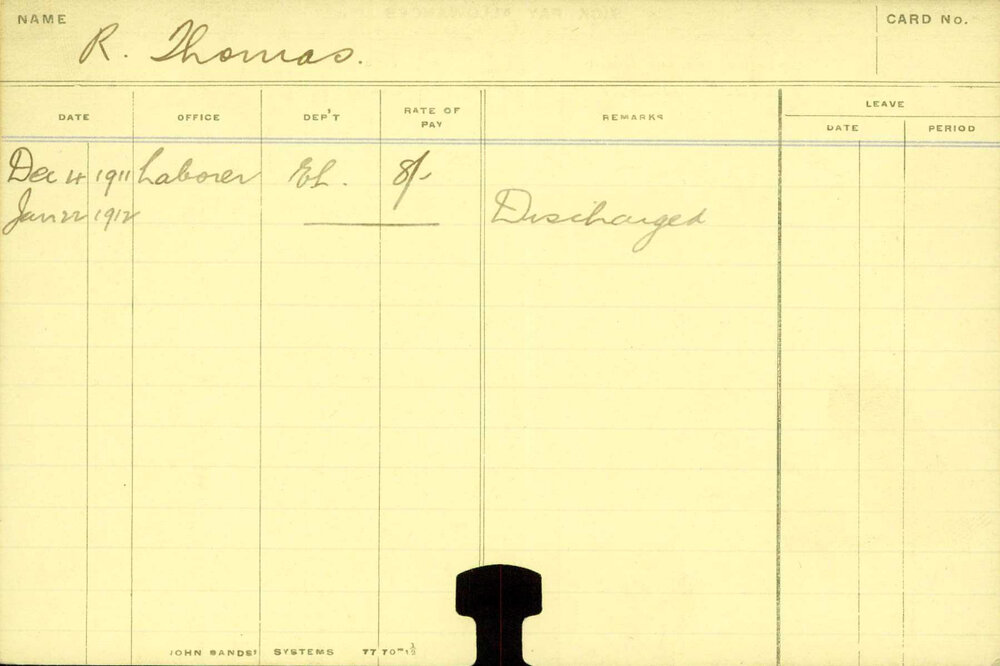 NAME R. Thomas. CARD No.
DATE OFFICE DEP'T RATE OF PAY REMARKS LEAVE
DATE PERIOD
Dec 4 1911 Laborer EL. 8/-
Jan 22 1912 Discharged
JOHN SANDS' SYSTEMS